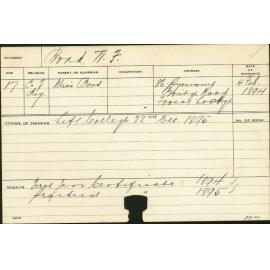 STUDENT Boad, W. F.
AGE RELIGION PARENT OR GUARDIAN OCCUPATION ADDRESS DATE OF ENTRANCE
17 C of Eng. Miss Boad Bridge Road Forest Lodge 4 Feb. 1894
COURSE OF TRAINING Left College 22nd Dec. 1895 NO. OF BOND
RESULTS First Year Certificate 1894
" 1895